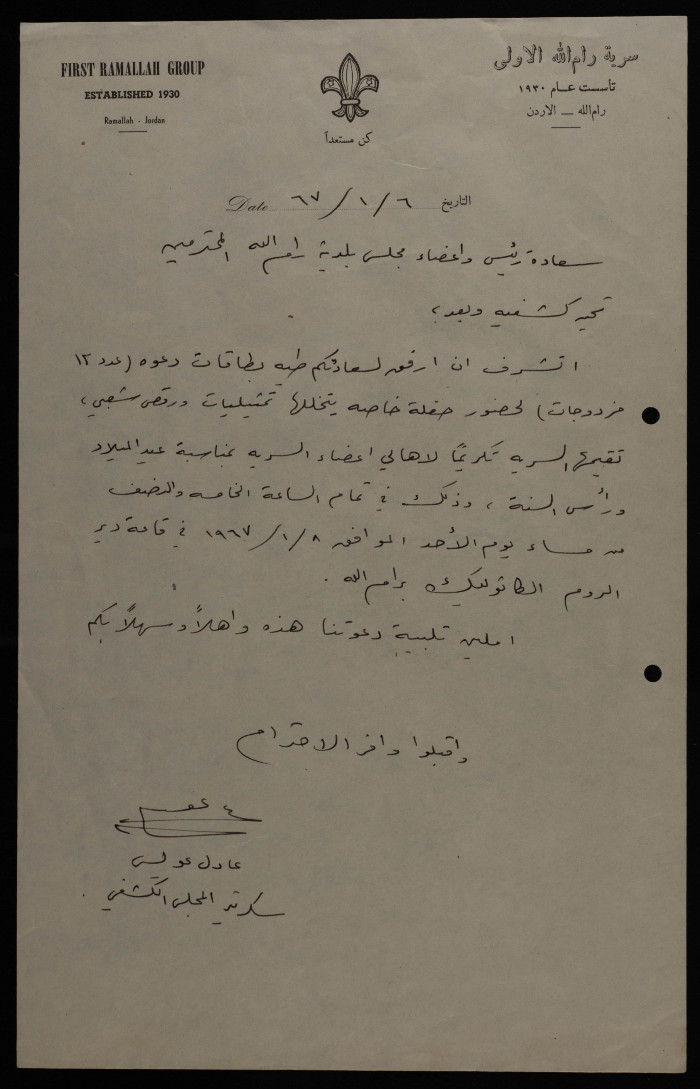 FIRST RAMALLAH GROUP
ESTABLISHED 1930
Ramallah - Jordan
سرية رام الله الاولى
تأسست عام ١٩٣٠
رام الله — الاردن
كن مستعداً
Date ٦٧/١/٦ التاريخ
سعادة رئيس واعضاء مجلس بلدية رام الله المحترمين
تحيه كشفيه وبعد،
اتشرف ان ارفق لسعادتكم طيه بطاقات دعوه (عدد ١٢
مزدوجات) لحضور حفلة خاصه يتخللها تمثيليات ورقص شعبي،
تقيمها السريه تكريمًا لاهالي اعضاء السريه بمناسبة عيد الميلاد
ورأس السنة، وذلك في تمام الساعة الخامسه والنصف
من مساء يوم الأحد الموافق ١٩٦٧/١/٨ في قاعة دير
الروم الكاثوليك برام الله.
املين تلبية دعوتنا هذه واهلاً وسهلاً بكم
واقبلوا وافر الاحترام
عادل عويس
سكرتير المجلس الكشفي.